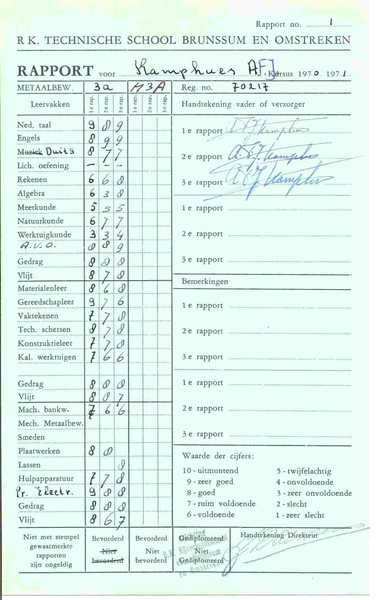 Rapport no. 1
R K. TECHNISCHE SCHOOL BRUNSSUM EN OMSTREKEN
RAPPORT voor Kamphues A F Kursus 1970 1971
METAALBEW. 3a M3A Reg. no. 70217
Leervakken 1e rap. 2e rap. 3e rap. 1e rap. 2e rap. 3e rap. Handtekening vader of verzorger
Ned. taal 9 8 9
Engels 8 9 9 1e rapport
Muziek Duits 8 7 7
Lich. oefening - - - 2e rapport
Rekenen 6 6 8
Algebra 6 3 8 3e rapport
Meetkunde 5 3 5
Natuurkunde 6 7 7 1e rapport
Werktuigkunde 3 3 4
A.V.O. 8 8 9 2e rapport
Gedrag 8 8 8
Vlijt 8 7 8 3e rapport
Materialenleer 8 6 8 Bemerkingen
Gereedschapleer 9 7 6
Vaktekenen 7 7 8 1e rapport
Tech. schetsen 8 7 8
Konstruktieleer 7 7 8 2e rapport
Kal. werktuigen 7 6 6
3e rapport
Gedrag 8 8 8 1e rapport
Vlijt 8 7 8
Mach. bankw. 7 6 6 2e rapport
Mech. Metaalbew.
Smeden 3e rapport
Plaatwerken 8 8
Waarde der cijfers:
Lassen 8
10 - uitmuntend 5 - twijfelachtig
Hulpapparatuur 7 7 8
9 - zeer goed 4 - onvoldoende
Pr. Electr. 9 8 8
8 - goed 3 - zeer onvoldoende
Gedrag 8 8 8
7 - ruim voldoende 2 - slecht
Vlijt 8 6 7
6 - voldoende 1 - zeer slecht
Niet met stempel gewaarmerkte rapporten zijn ongeldig
Bevorderd
Niet bevorderd
Bevorderd
Niet bevorderd
Gediplomeerd
Niet Gediplomeerd
Handtekening Direkteur